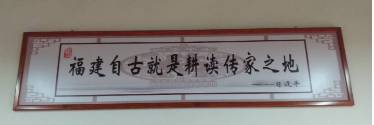 福建自古就是耕读传家之地